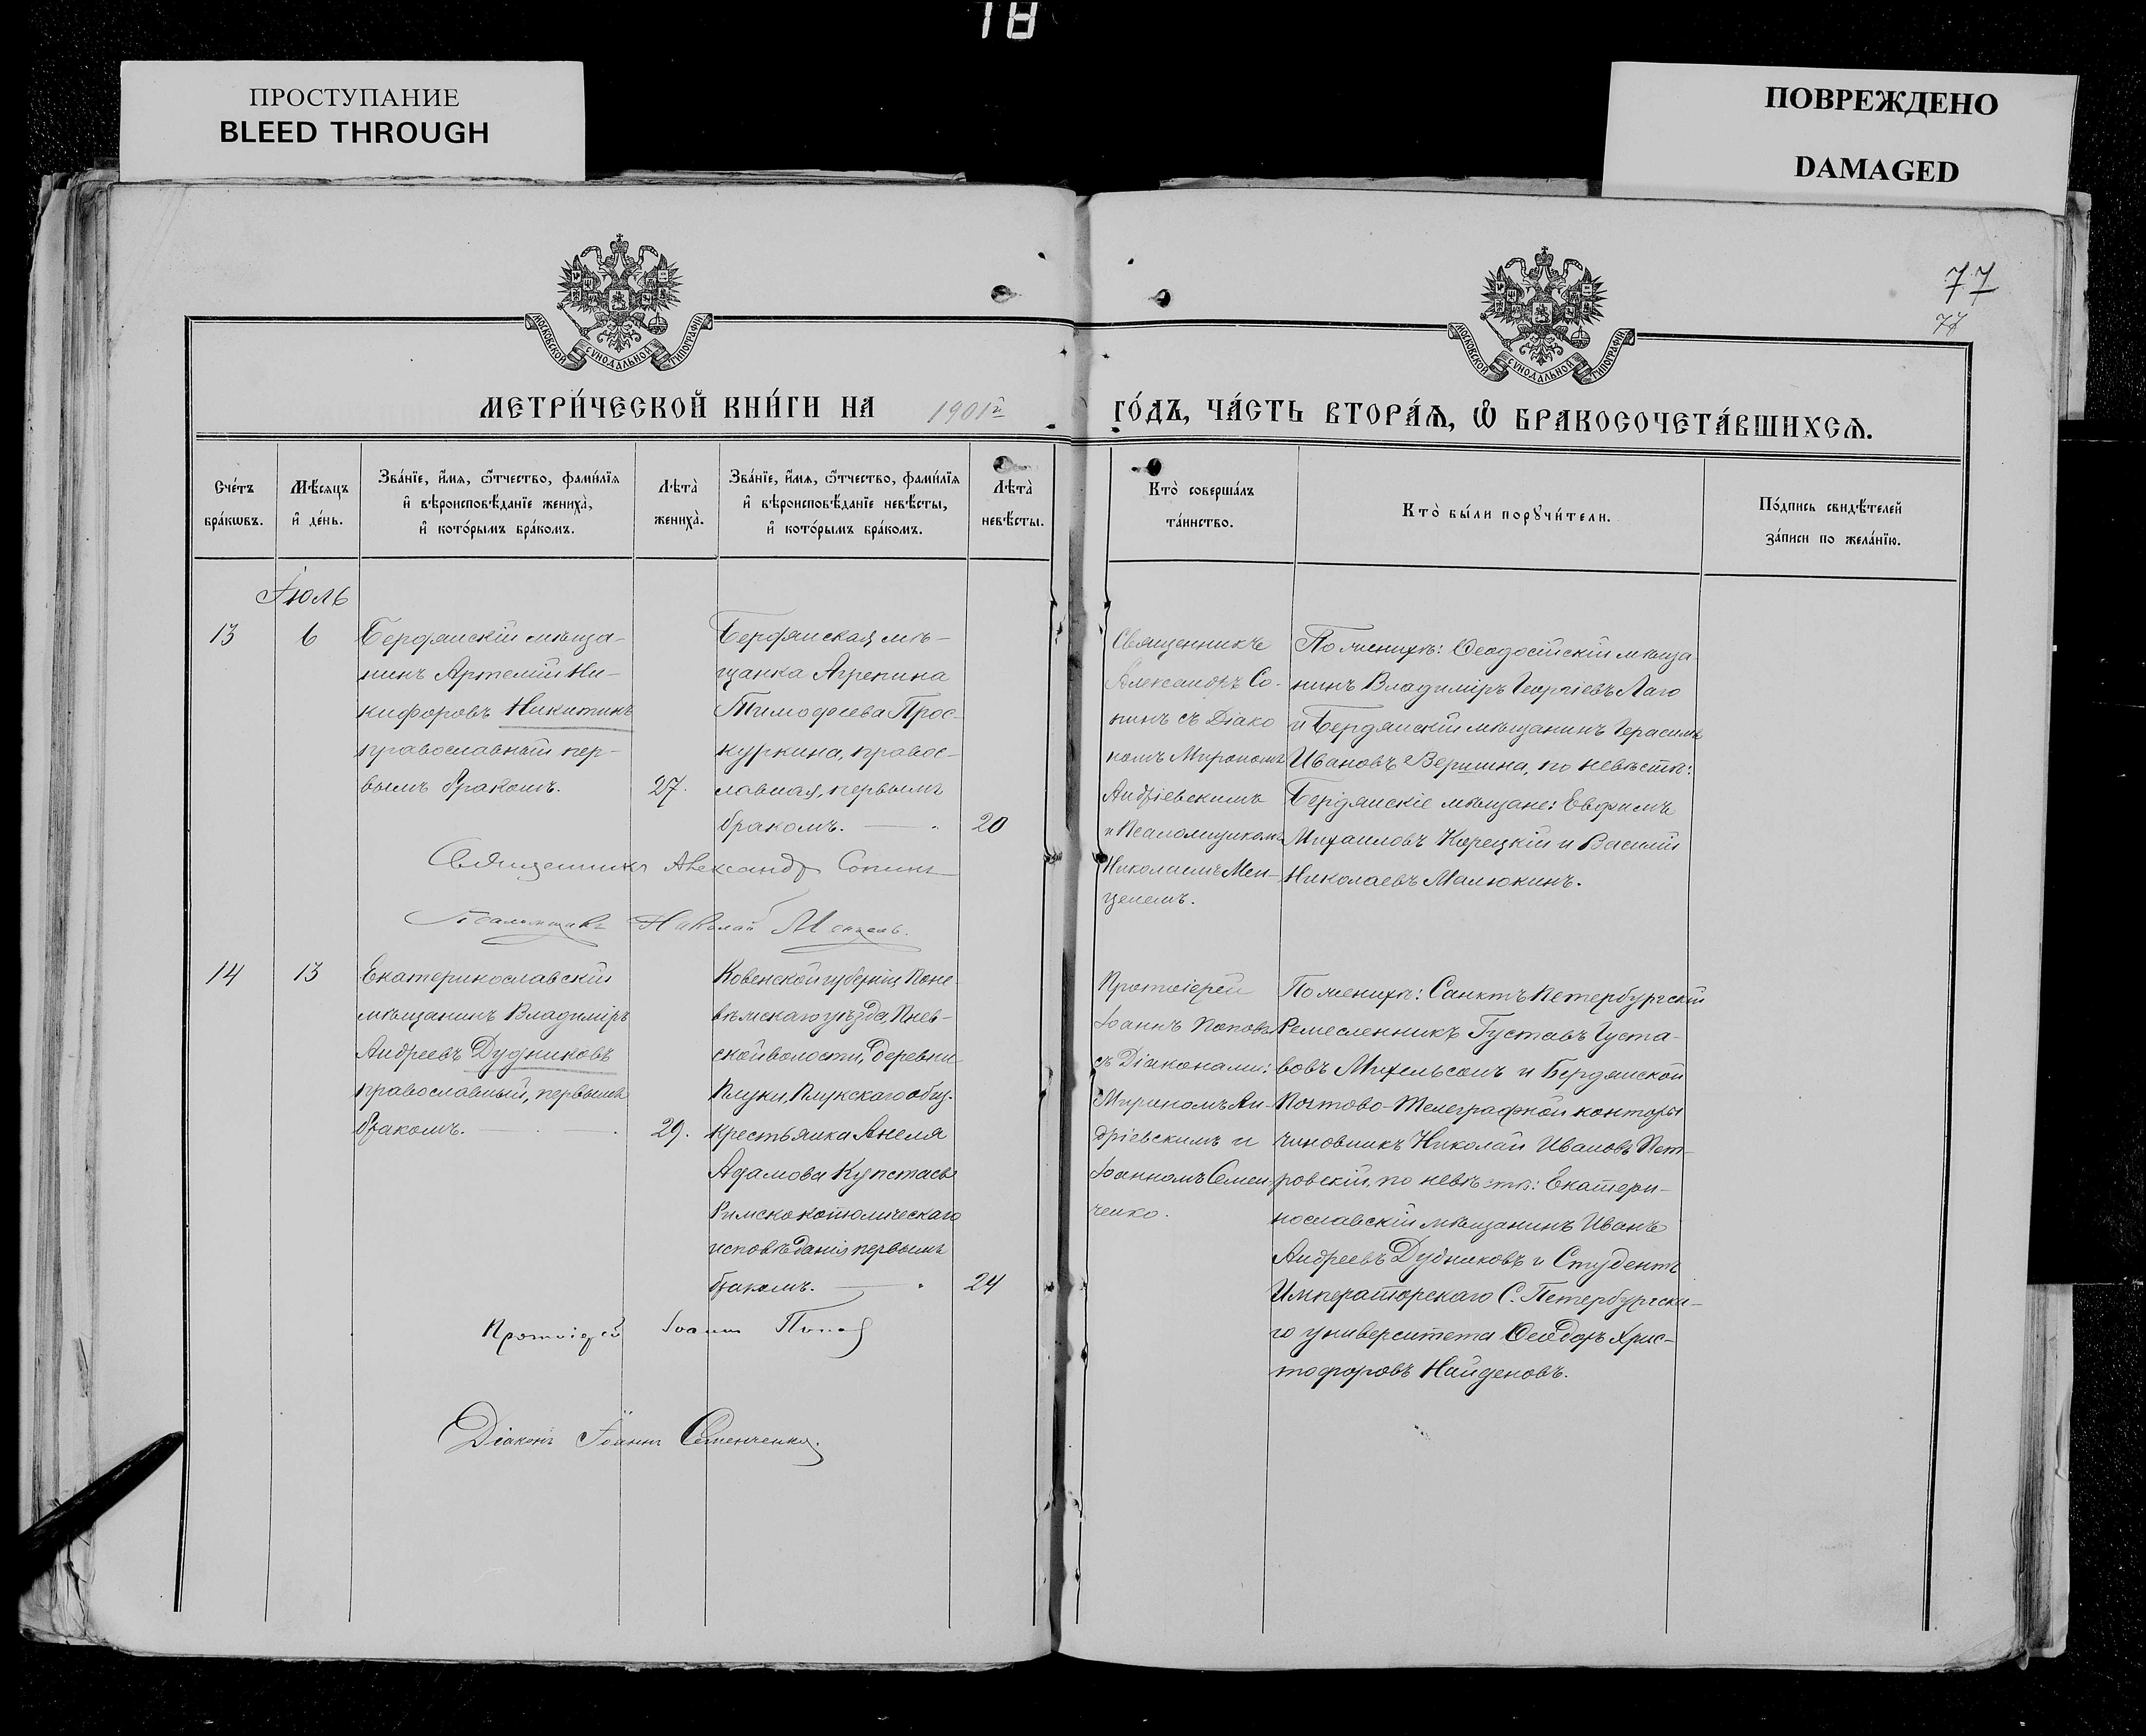 18
ПРОСТУПАНИЕ
BLEED THROUGH
ПОВРЕЖДЕНО
DAMAGED
77
77
МОСКОВСКОЙ СУНОДАЛЬНОЙ ТИПОГРАФІИ
МОСКОВСКОЙ СУНОДАЛЬНОЙ ТИПОГРАФІИ
МЕТРИ́ЧЕСКОЙ КНИ́ГИ НА 1901й ГО́ДЪ, ЧА́СТЬ ВТОРА́Ѧ, Ѡ҆ БРАКОСОЧЕТА́ВШИХСѦ.
Сче́тъ
бра́кѡвъ.
Мѣ́сяцъ
и҆ де́нь.
Зва́нїе, и҆́мѧ, ѻ҆́тчество, фами́лїѧ
и҆ вѣроисповѣ́данїе жениха̀,
и҆ кото́рымъ бра́комъ.
Лѣта̀
жениха̀.
Зва́нїе, и҆́мѧ, ѻ҆́тчество, фами́лїѧ
и҆ вѣроисповѣ́данїе невѣ́сты,
и҆ кото́рымъ бра́комъ.
Лѣта̀
невѣ́сты.
Кто̀ соверша́лъ
та́инство.
Кто̀ бы́ли порꙋчи́тели.
По́дпись свидѣ́телей
за́писи по жела́нїю.
Іюль
13
6
Бердянскій мѣща-
нинъ Артемій Ни-
кифоровъ Никитинъ
православный пер-
вымъ бракомъ.
27.
Бердянская мѣ-
щанка Агрепина
Тимофеева Прос-
куркина, правос-
лавная, первымъ
бракомъ.
20
Священникъ
Александръ Со-
нинъ съ Діако
номъ Мирономъ
Андріевскимъ
и Псаломщикомъ
Николаемъ Мен-
целемъ.
По женихѣ: Ѳеодосійскій мѣща
нинъ Владиміръ Георгіевъ Лаго
и Бердянскій мѣщанинъ Герасимъ
Ивановъ Вершина, по невѣстѣ:
Бердянскіе мѣщане: Евфимъ
Михаиловъ Корецкій и Василій
Николаевъ Малюкинъ.
Священникъ Александръ Сонинъ
Псаломщикъ Николай Менцель.
14
13
Екатеринославскій
мѣщанинъ Владиміръ
Андреевъ Дудниковъ
православный, первымъ
бракомъ.
29.
Ковенской губерніи Поне-
вѣжскаго уѣзда, Пнев-
ской волости, деревни
Плуки, Плукскаго общ.
крестьянка Анеля
Адамова Купстасъ
Римскокатолическаго
исповѣданія первымъ
бракомъ.
24
Протоіерей
Іоаннъ Поповъ
съ Діаконами:
Мирономъ Ан-
дріевскимъ и
Іоанномъ Семен-
ченко.
По женихѣ: Санктъ Петербургскій
Ремесленникъ Густавъ Густа-
вовъ Михельсонъ и Бердянской
Почтово-Телеграфной конторы
чиновникъ Николай Ивановъ Пет-
ровскій, по невѣстѣ: Екатери-
нославскій мѣщанинъ Иванъ
Андреевъ Дудниковъ и Студентъ
Императорскаго С. Петербургска-
го университета Ѳеодоръ Хрис-
тофоровъ Найденовъ.
Протоіерей Іоаннъ Поповъ
Діаконъ Іоаннъ Семенченко.